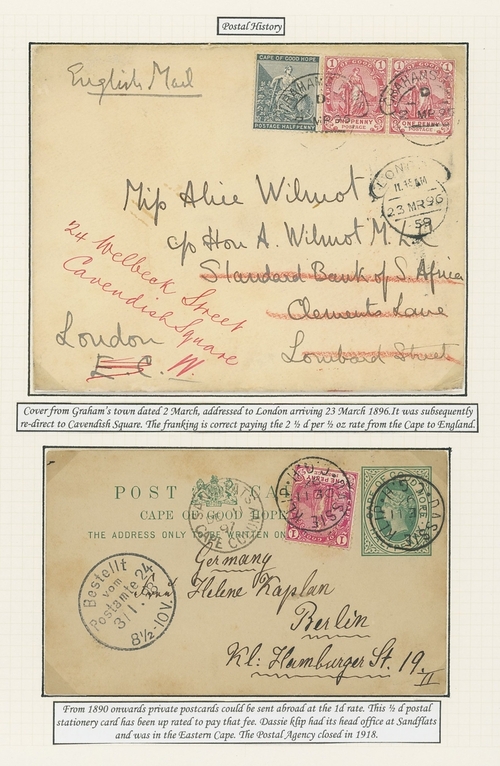 Postal History
English Mail
CAPE OF GOOD HOPE
POSTAGE HALFPENNY
LONDON
11.15 AM
23 MR 96
59
Miss Alice Wilmot
c/o Hon A. Wilmot M.L.C
Standard Bank of S. Africa
Clements Lane
Lombard Street
London
E.C. W.
24 Welbeck Street
Cavendish Square
Cover from Graham's town dated 2 March, addressed to London arriving 23 March 1896.It was subsequently
re-direct to Cavendish Square. The franking is correct paying the 2 ½ d per ½ oz rate from the Cape to England.
POST CA
CAPE OF GOOD HOPE
THE ADDRESS ONLY TO BE WRITTEN ON
Germany
Helene Kaplan
Berlin
Kl: Hamburger St. 19.
II
Bestellt
vom
Postamte 24
3/1.98
8½-10V.
From 1890 onwards private postcards could be sent abroad at the 1d rate. This ½ d postal
stationery card has been up rated to pay that fee. Dassie klip had its head office at Sandflats
and was in the Eastern Cape. The Postal Agency closed in 1918.